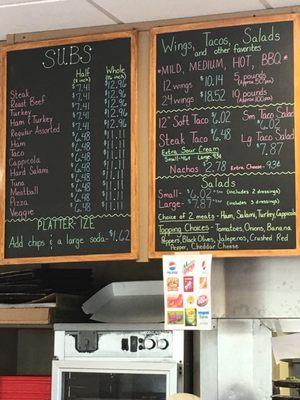 SUBS
Half Whole
(6 inch) (12 inch)
Steak $7.41 $12.96
Roast Beef $7.41 $12.96
Turkey $7.41 $12.96
Ham & Turkey $7.41 $12.96
Regular Assorted $6.48 $11.11
Ham $6.48 $11.11
Taco $6.48 $11.11
Cappicola $6.48 $11.11
Hard Salami $6.48 $11.11
Tuna $6.48 $11.11
Meatball $6.48 $11.11
Pizza $6.48 $11.11
Veggie $6.48 $11.11
PLATTER-IZE
Add chips & a large soda-$1.62
Wings, Tacos, Salads
and other favorites
*MILD, MEDIUM, HOT, BBQ*
12 wings $10.14 5 pounds
24 wings $18.52 10 pounds
(approx)
12" Soft Taco $6.02 Sm Taco Salad
Steak Taco $6.48 6.02
Extra Sour Cream Lg Taco Salad
Small-46¢ Large 93¢ $7.87
Nachos $2.78 Extra Cheese 93¢
Salads
Small- $6.02 (includes 2 dressings)
Large- $7.87 (includes 3 dressings)
Choice of 2 meats - Ham, Salami, Turkey, Cappicola
Topping Choices - Tomatoes, Onions, Banana
Peppers, Black Olives, Jalepenos, Crushed Red
Pepper, Cheddar Cheese
pepsi